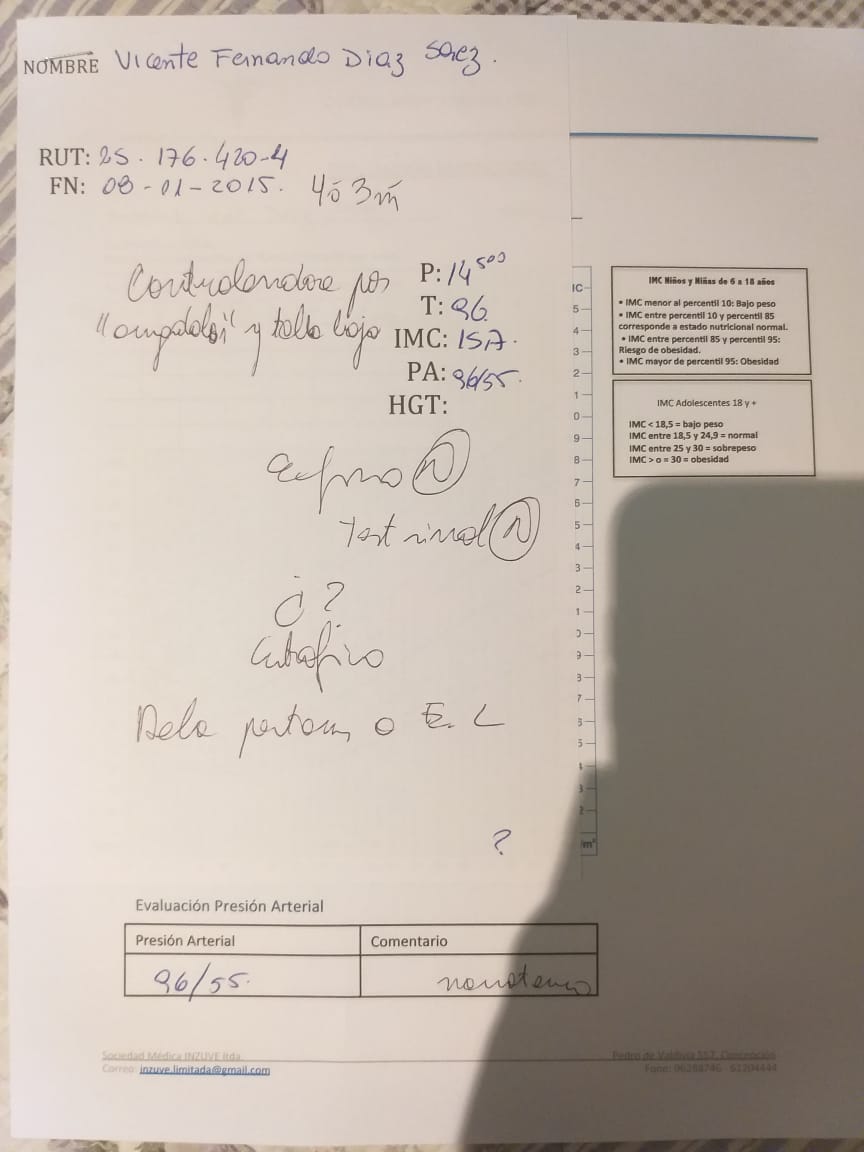 NOMBRE Vicente Fernando Diaz Saez.
RUT: 25.176.420-4
FN: 08-01-2015. 4a 3m
Controlandose por
" " y talla baja
P: 14500
T: 96.
IMC: 15,7.
PA: 96/55.
HGT:
Test visual N
¿?
Eutrofico
?
IMC Niños y Niñas de 6 a 18 años
• IMC menor al percentil 10: Bajo peso
• IMC entre percentil 10 y percentil 85
corresponde a estado nutricional normal.
• IMC entre percentil 85 y percentil 95:
Riesgo de obesidad.
• IMC mayor de percentil 95: Obesidad
IMC Adolescentes 18 y +
IMC < 18,5 = bajo peso
IMC entre 18,5 y 24,9 = normal
IMC entre 25 y 30 = sobrepeso
IMC > o = 30 = obesidad
IC
5
4
3
2
1
0
9
8
7
6
5
4
3
2
1
9
3
7
5
m²
Evaluación Presión Arterial
Presión Arterial
Comentario
96/55.
normotenso
Sociedad Médica INZUVE ltda.
Correo: inzuve.limitada@gmail.com
Pedro de Valdivia 557, Concepción
Fono: 96288746 - 61204444